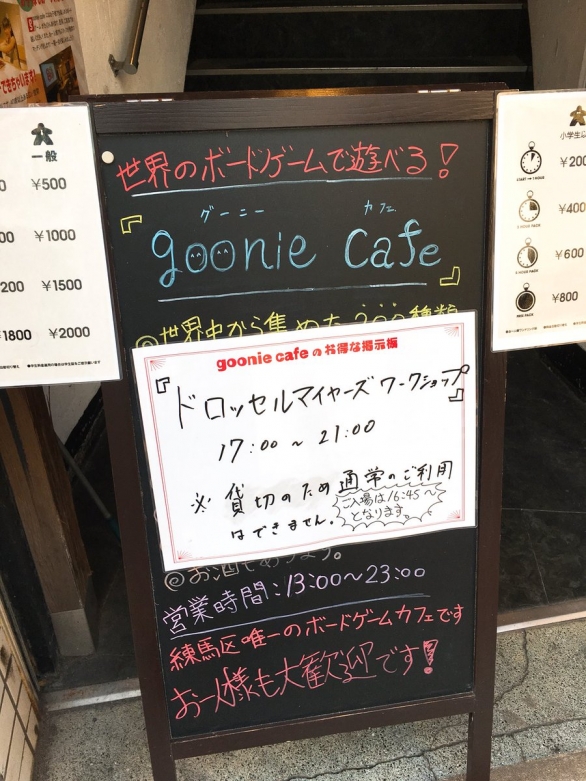 世界のボードゲームで遊べる!
グーニー カフェ
『goonie cafe』
◎世界中から集めた
goonie cafeのお得な掲示板
『ドロッセルマイヤーズ ワークショップ』
17:00~21:00
※ 貸切のため通常のご利用
はできません。
ご入場は16:45~
となります。
◎お酒もあります。
営業時間:13:00~23:00
練馬区唯一のボードゲームカフェです
お一人様も大歓迎です!
一般
¥500
¥1000
200 ¥1500
¥1800 ¥2000
小学生以
¥200
¥400
¥600
¥800
できちゃいます!